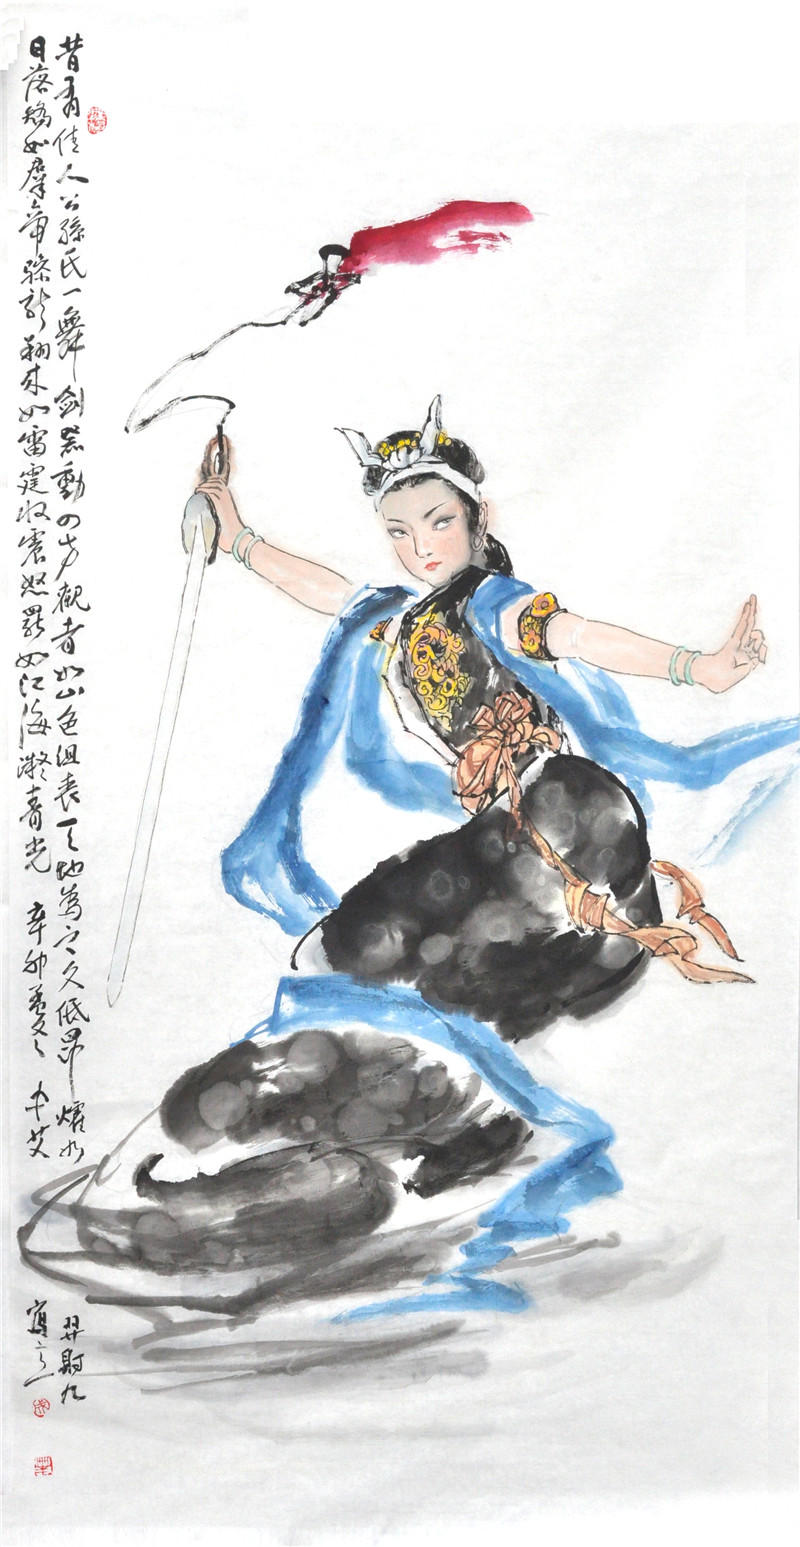 昔有佳人公孫氏一舞劍器動四方觀者如山色沮喪天地為之久低昂燿如羿射九
日落矯如羣帝驂龍翔來如雷霆收震怒罷如江海凝青光 辛卯夏